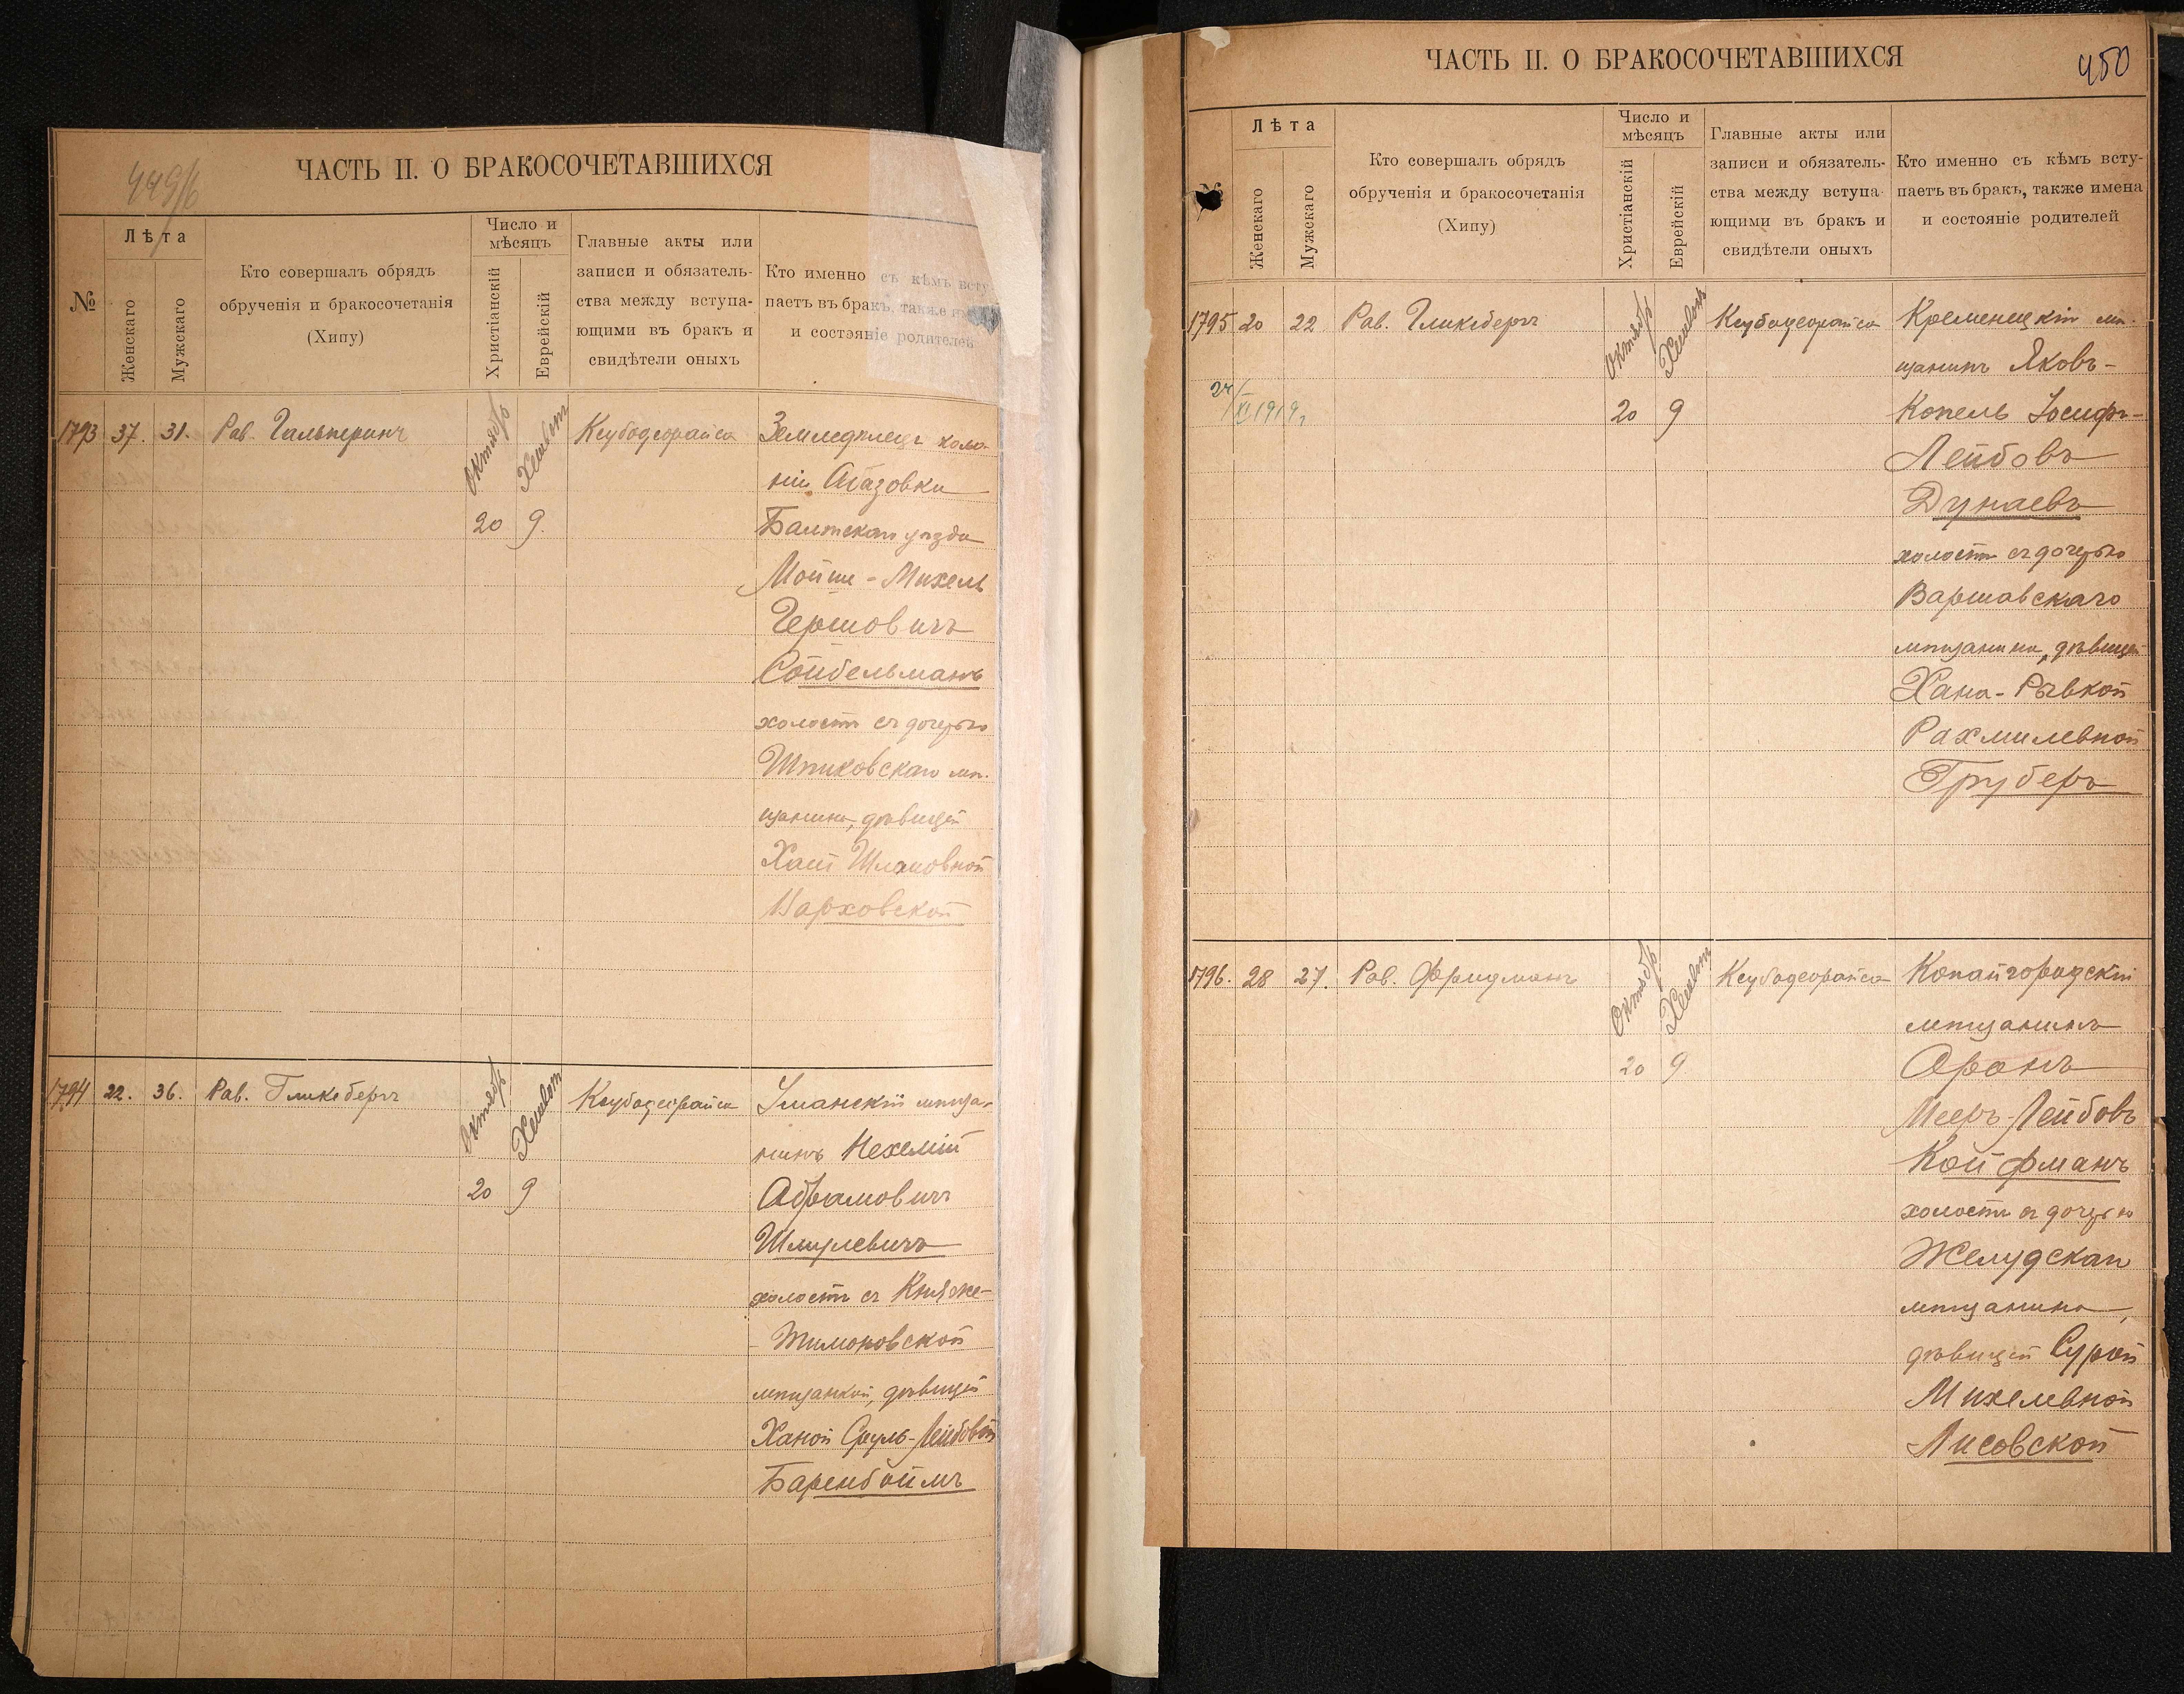 449/б
ЧАСТЬ II. О БРАКОСОЧЕТАВШИХСЯ
№
Лѣта
Женскаго
Мужскаго
Кто совершалъ обрядъ
обрученія и бракосочетанія
(Хипу)
Число и
мѣсяцъ
Христіанскій
Еврейскій
Главные акты или
записи и обязатель-
ства между вступа-
ющими въ бракъ и
свидѣтели оныхъ
Кто именно съ кѣмъ всту-
паетъ въ бракъ, также имена
и состояніе родителей
1793 37. 31. Рав. Гальперинъ
Октябр Хешвот
20 9.
Ксубодеорайса
Земледѣлецъ коло-
ніи Абазовки
Балтскаго уѣзда
Мойше-Михель
Гершовичъ
Сойбельманъ
холостъ съ дочерью
Шпиковскаго мѣ-
щанина, дѣвицей
Хаей Шлемовной
Барховской
1794 22. 36. Рав. Гликсбергъ
Октябр Хешвот
20 9
Ксубодеорайса
Уманскій мѣща-
нинъ Нехемій
Абрамовичъ
Шмулевичъ
холостъ съ Княже-
-Тимоновской
мѣщанкой, дѣвицей
Ханой Сруль-Лейбовой
Баренбоймъ
450
ЧАСТЬ II. О БРАКОСОЧЕТАВШИХСЯ
№
Лѣта
Женскаго
Мужскаго
Кто совершалъ обрядъ
обрученія и бракосочетанія
(Хипу)
Число и
мѣсяцъ
Христіанскій
Еврейскій
Главные акты или
записи и обязатель-
ства между вступа-
ющими въ бракъ и
свидѣтели оныхъ
Кто именно съ кѣмъ всту-
паетъ въ бракъ, также имена
и состояніе родителей
1795 20 22 Рав. Гликсбергъ
Октябр Хешвот
20 9
Ксубодеорайса
Кременецкій мѣ-
щанинъ Яковъ-
Копель Іосифъ-
Лейбовъ
Дунаевъ
холостъ съ дочерью
Варшавскаго
мѣщанина, дѣвицей
Хана-Рывкой
Рахмилевной
Груберъ
1796. 28 27. Рав. Фридманъ
Октябр Хешвот
20 9
Ксубодеорайса
Копайгородскій
мѣщанинъ
Аронъ
Мееръ-Лейбовъ
Койфманъ
холостъ съ дочерью
Желудскаго
мѣщанина,
дѣвицей Сурой
Михелевной
Лисовской